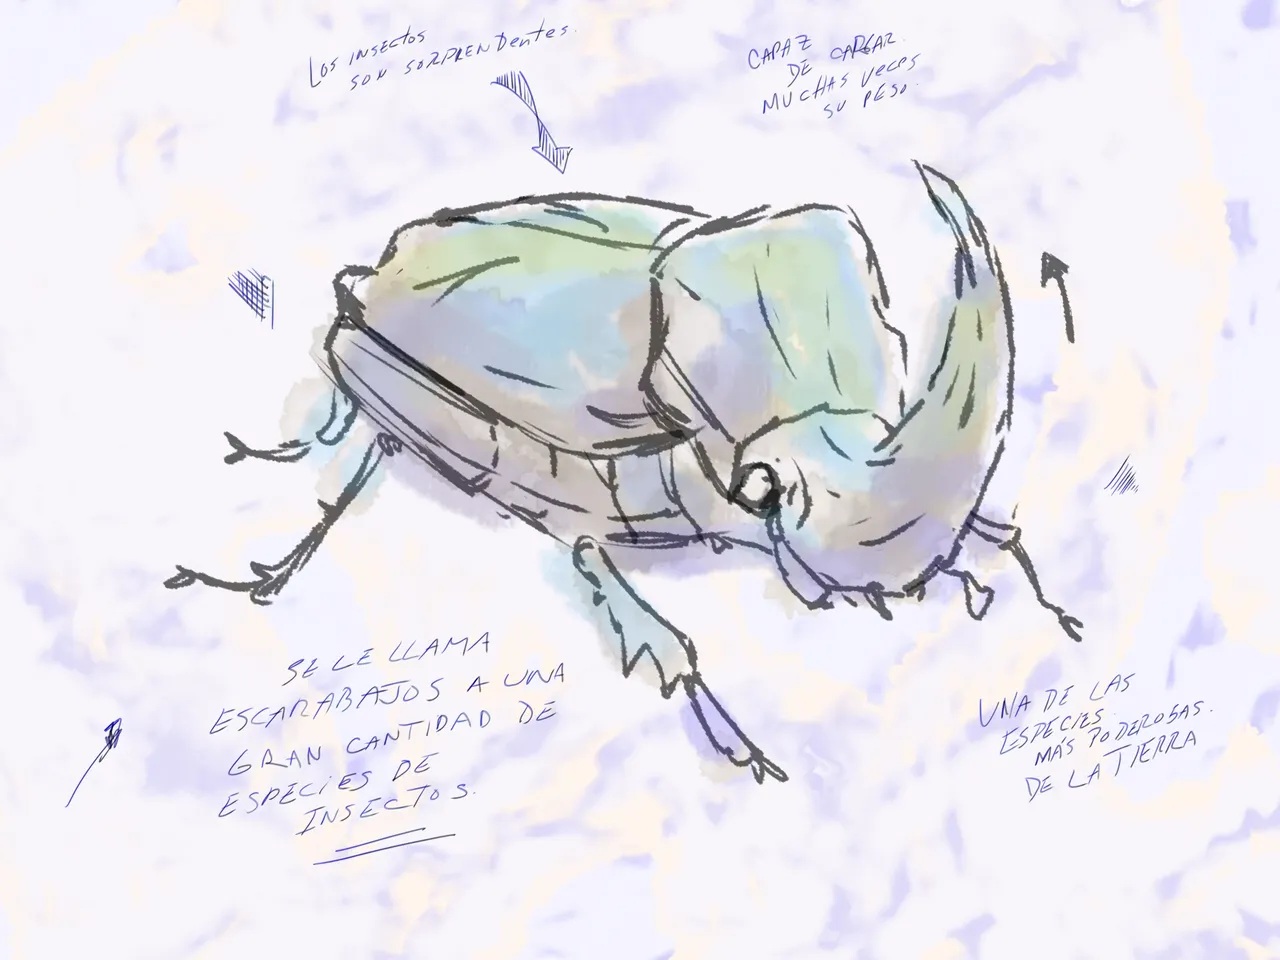 Los insectos
son sorprendentes.
CAPAZ
DE CARGAR.
MUCHAS VECES
SU PESO.
SE LE LLAMA
ESCARABAJOS A UNA
GRAN CANTIDAD DE
ESPECIES DE
INSECTOS.
UNA DE LAS
ESPECIES
MÁS PODEROSAS.
DE LA TIERRA